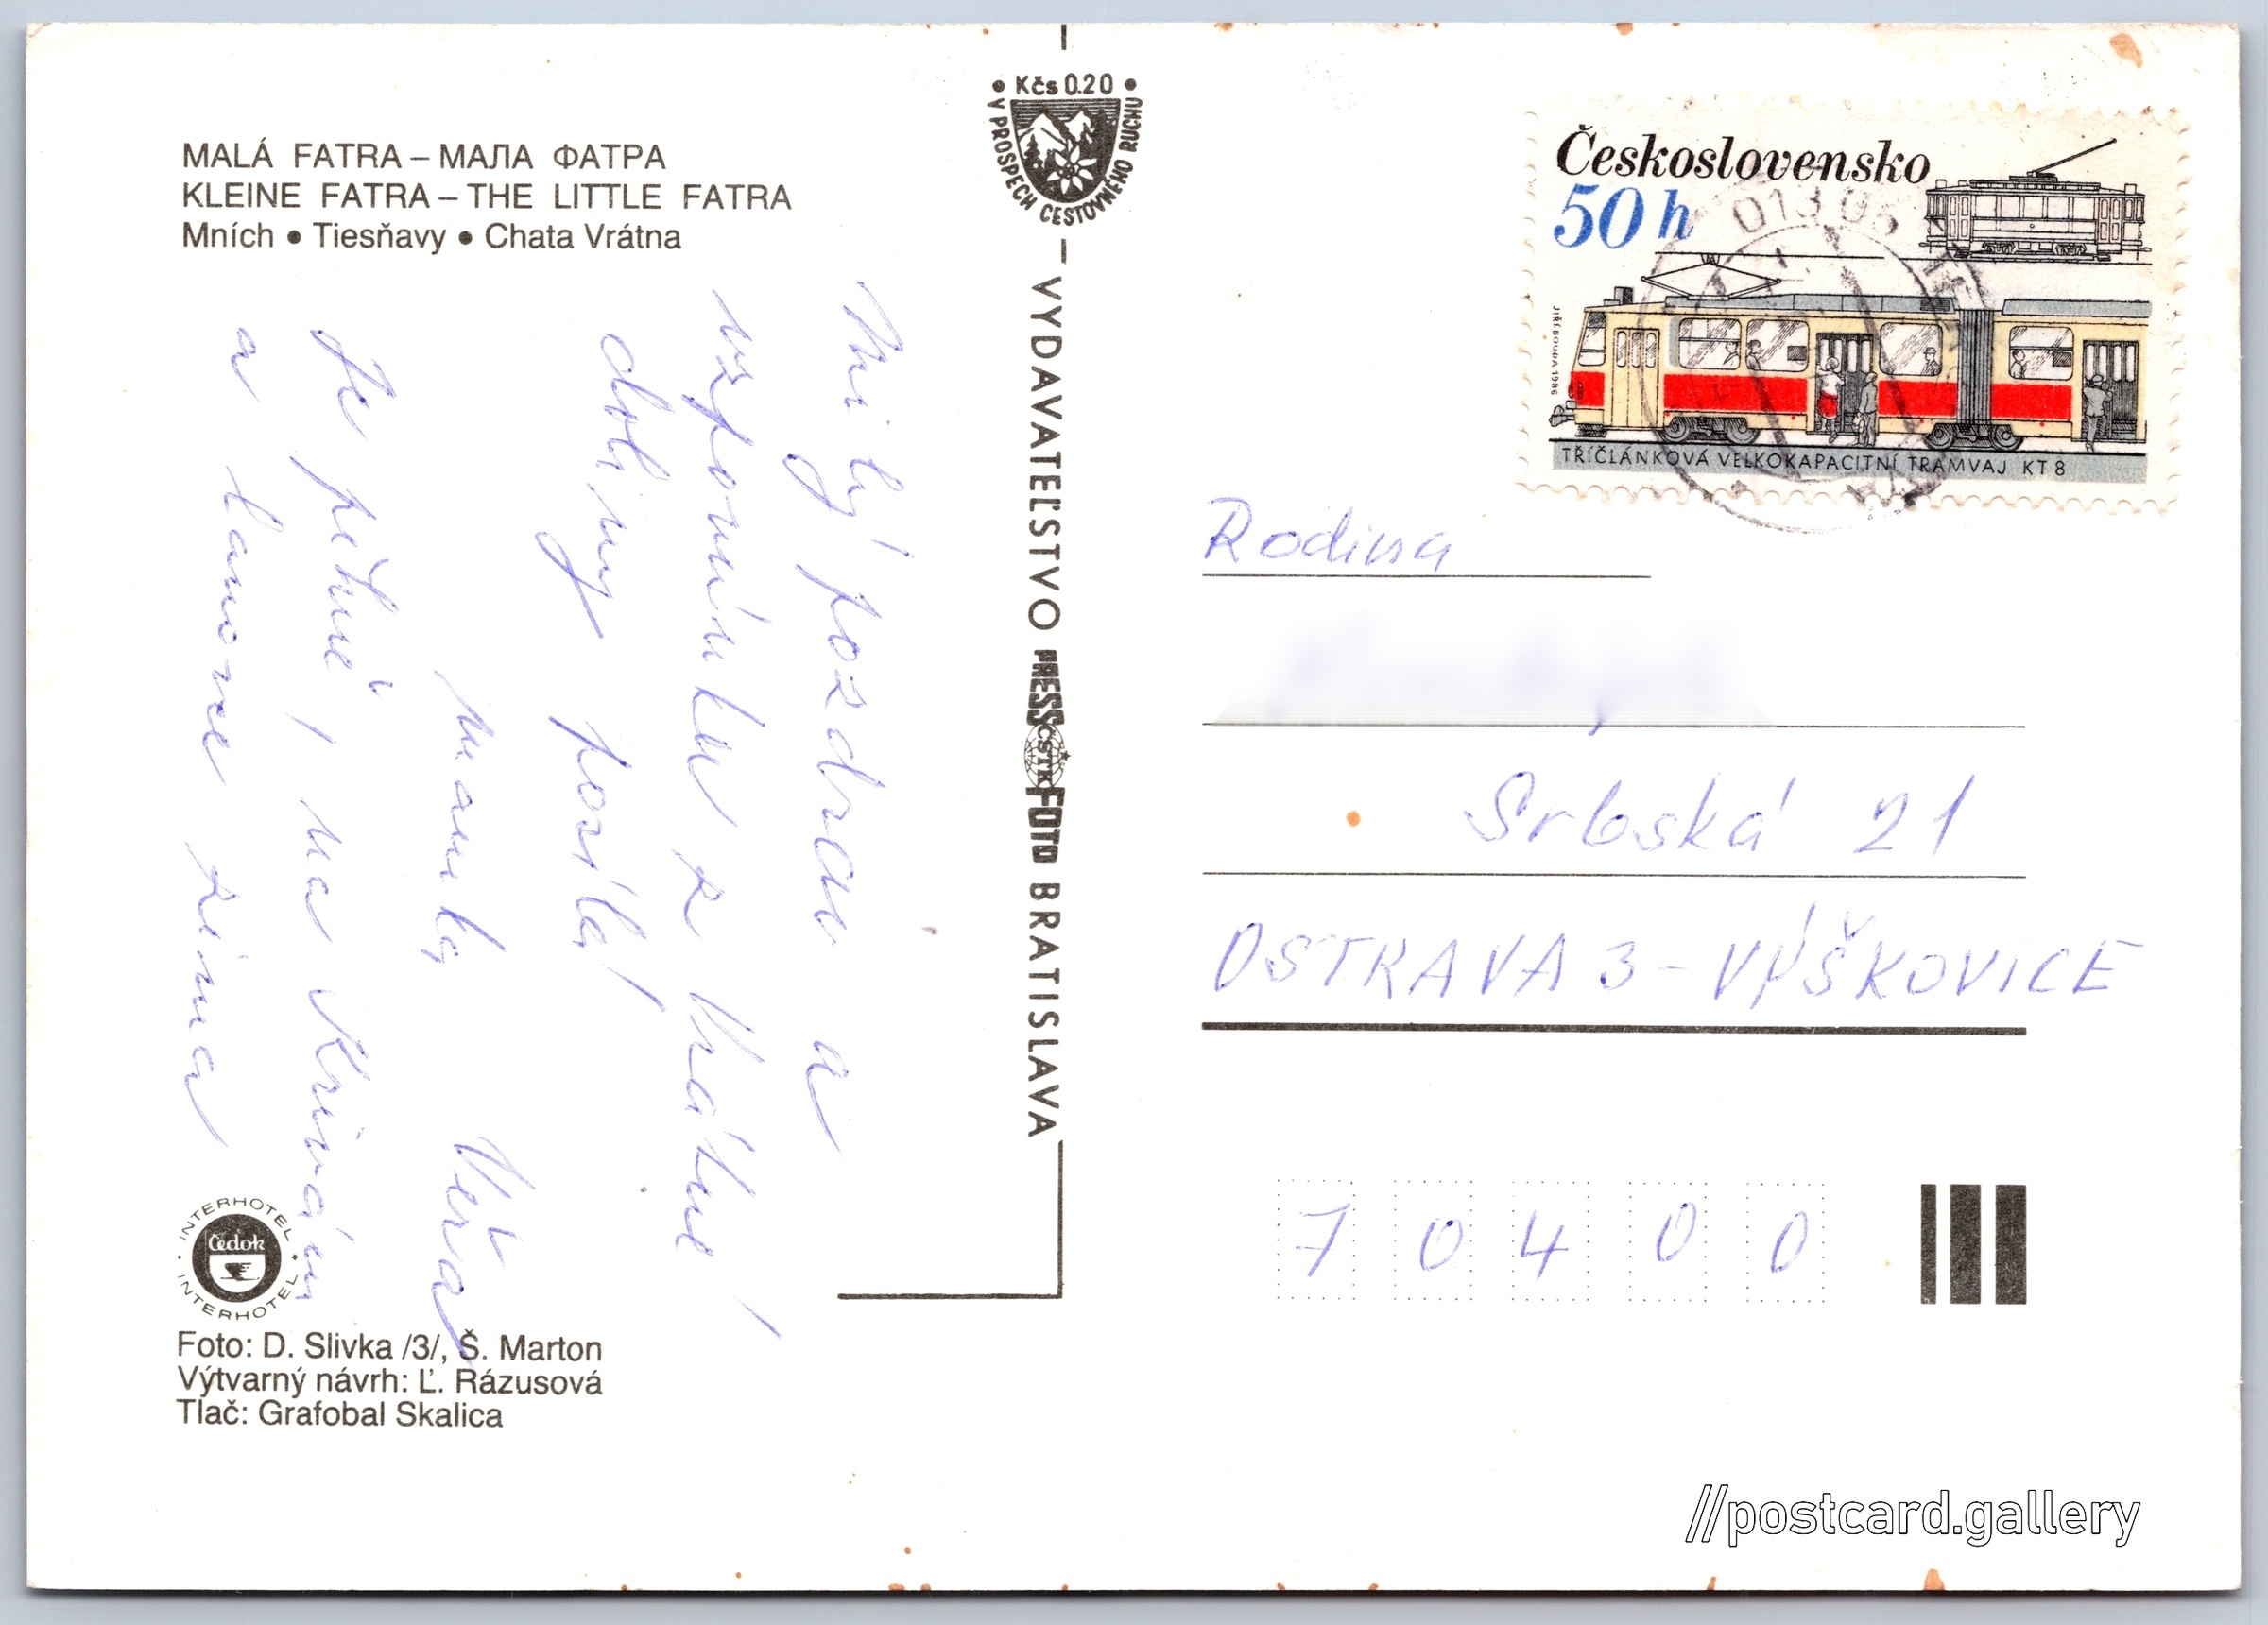 MALÁ FATRA – МАЛА ФАТРА
KLEINE FATRA – THE LITTLE FATRA
Mních • Tiesňavy • Chata Vrátna
Milý pozdrav a
vzpomínku z krátké
doliny posílá
mamka Věra
Je pěkně, na Kriváni
a lanovce zima
INTERHOTEL
Čedok
INTERHOTEL
Foto: D. Slivka /3/, Š. Marton
Výtvarný návrh: Ľ. Rázusová
Tlač: Grafobal Skalica
• Kčs 0.20 •
V PROSPECH CESTOVNÉHO RUCHU
– VYDAVATEĽSTVO PRESSFOTO BRATISLAVA
ČSTK
Československo
50 h
013 06
JIŘÍ BOUDA 1986
TŘÍČLÁNKOVÁ VELKOKAPACITNÍ TRAMVAJ KT8
Rodina
Srbská 21
OSTRAVA 3 – VÝŠKOVICE
70400
//postcard.gallery